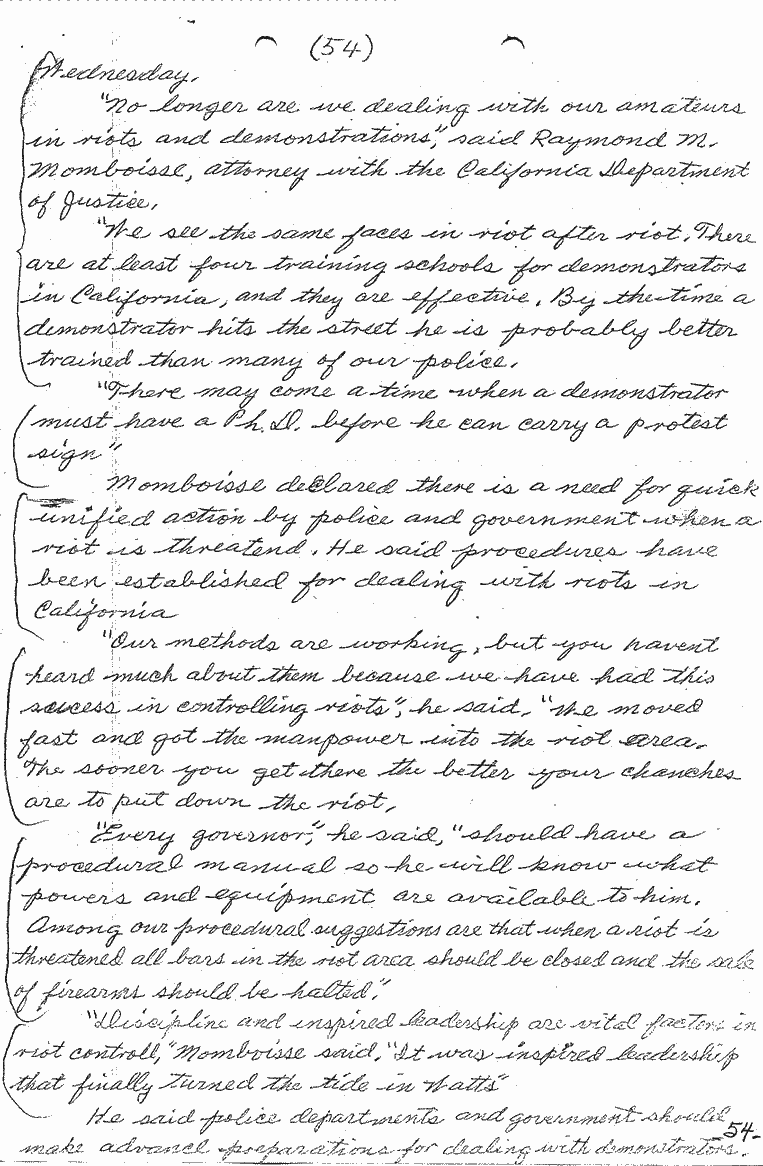 (54)
Wednesday.
"No longer are we dealing with our amateurs
in riots and demonstrations", said Raymond M.
Momboisse, attorney with the California Department
of Justice.
"We see the same faces in riot after riot. There
are at least four training schools for demonstrators
in California, and they are effective. By the time a
demonstrator hits the street he is probably better
trained than many of our police.
"There may come a time when a demonstrator
must have a Ph.D. before he can carry a protest
sign"
Momboisse declared there is a need for quick
unified action by police and government when a
riot is threatend. He said procedures have
been established for dealing with riots in
California
"Our methods are working, but you havent
heard much about them because we have had this
sucess in controlling riots", he said. "We moved
fast and got the manpower into the riot area.
The sooner you get there the better your chanches
are to put down the riot.
"Every governor", he said, "should have a
procedural manual so he will know what
powers and equipment are available to him.
Among our procedural suggestions are that when a riot is
threatened all bars in the riot area should be closed and the sale
of firearms should be halted."
"Discipline and inspired leadership are vital factors in
riot controll," Momboisse said, "It was inspired leadership
that finally turned the tide in Watts"
He said police departments and government should
make advance preparations for dealing with demonstrators.
54-